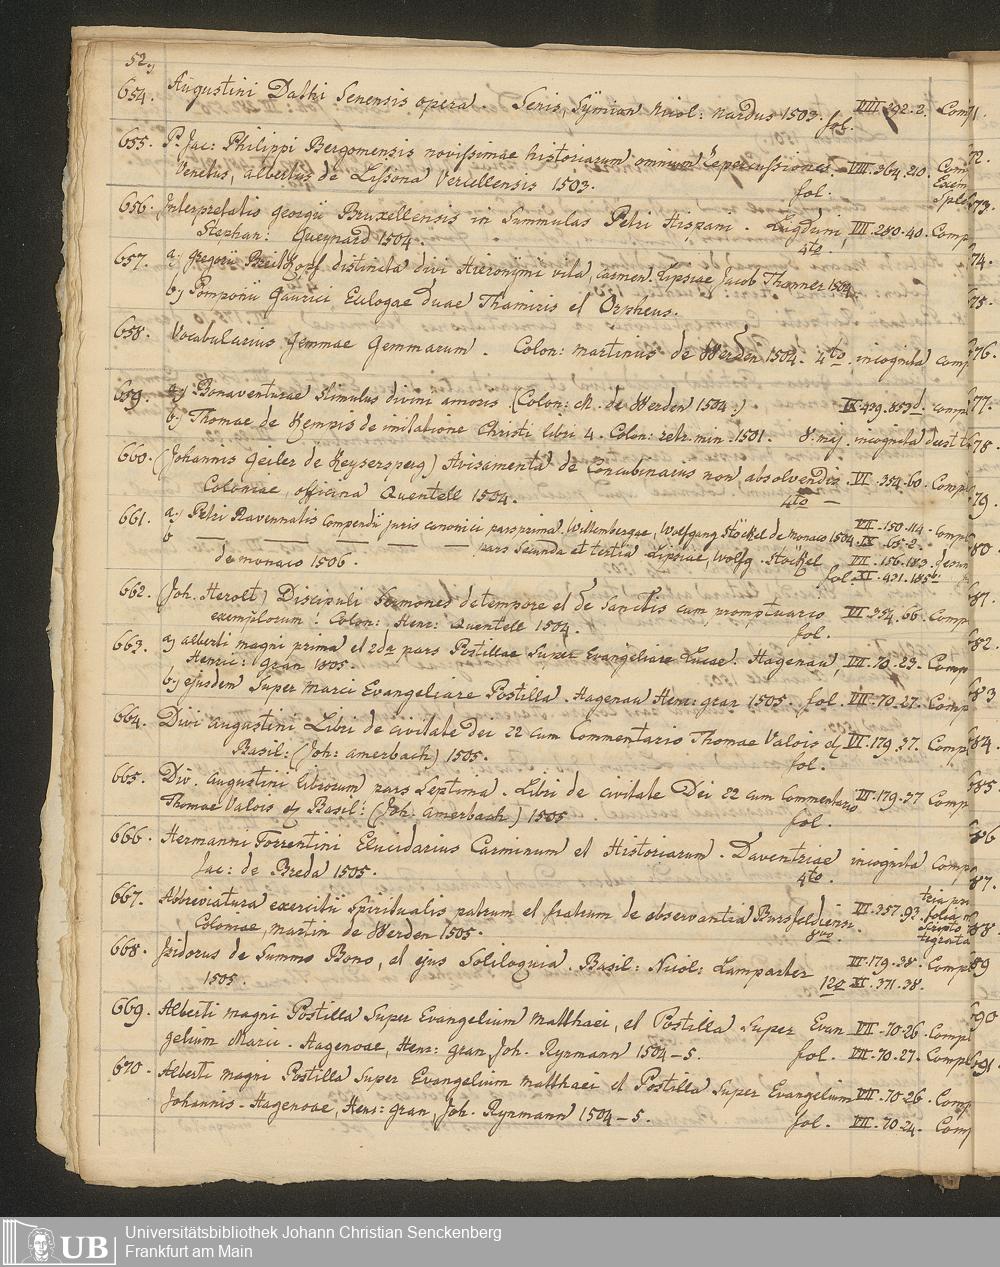 52.
654. Augustini Dathi Senensis opera. Senis, Symion Nicol: Nardus 1503. fol. VIII 292.2. Comp
655. P. Jac: Philippi Bergomensis novissimae historiarum omnium repercussiones. VIII.364.210. Com
Venetus, albertus de Lissona Vercellensis 1503. fol. Exem
656. Interpretatio georgii Bruxellensis in Summulas Petri Hispani. Lugduni, VII.280.40. Comp
Stephan: Gueynard 1504. 4to.
657. a) gregorii Breitkopf distincta divi Hieronymi vita, carmen. Lipsiae Jacob Thanner 1504.
b) Pomponii Gaurici Eulogae duae Thamiris et Orpheus.
658. Vocabularius gemmae gemmarum. Colon: martinus de Werden 1504. 4to. incognita comp
659. a) Bonaventurae stimulus divini amoris (Colon: M. de Werden 1504.) IX.439.853d. comp
b) Thomae de Kempis de imitatione Christi libri 4. Colon: retr. min. 1501. 8. maj. incognita deest t
660. (Johannis geiler de Keysersperg) Avisamenta de Concubinarus non absolvendis VI.354.60. Comp
Coloniae, officina Quentell 1504. 4to
661. a) Petri Ravennatis Compendii juris canonici pars prima, Wittembergae, Wolfgang Stöckel de monaco 1504. VII.150.114. comp
IX.65.2.
b — — — — — — pars Secunda et tertia Lipsiae, Wolfg. Stöckel VII.156.183.
de monaco 1506. fol. XI.421.185b.
662. (Joh. Herolt) Discipuli Sermones de tempore et de Sanctis cum promptuario VI.354.66. Comp
exemplorum. Colon: Henr: Quentell 1504. fol.
663. a) alberti magni prima et 2da pars Postillae Super Evangeliare Lucae. Hagenau, VII.70.29. Comp
Henric: gran 1505.
b) ejusdem Super Marci Evangeliare Postilla. Hagenau Henr: gran 1505. fol VII.70.27. Comp
664. Divi augustini Libri de civitate Dei 22 cum Commentario Thomae Valois et VI.179.37. Comp
Basil: (Joh: amerbach) 1505. fol.
665. Div. augustini librorum pars Septima. Libri de civitate Dei 22 cum Commentario VI.179.37 Comp
Thomae Valois et Basil: (Joh: amerbach) 1505. fol
666. Hermanni Torrentini Elucidarius Carminum et Historiarum. Daventriae incognita Comp
Jac: de Breda 1505. 4to.
667. Abbreviatura exercitii Spiritualis patrum et fratrum de observantia Bursfeldiensi VI.357.93. folia
Coloniae, martin de Werden 1505. 8vo. scripto
tegrata
668. Isidorus de Summo Bono, et ejus Soliloquia. Basil: Nicol: Lamparter VI.179.38. Comp
1505. 12o XI.371.38.
669. Alberti magni Postilla Super Evangelium Matthaei, et Postilla Super Evan VII.70.26. Comp
gelium Marci. Hagenoae, Henr: gran, Joh. Rynmann 1504-5. fol. VII.70.27. Comp
670. Alberti magni Postilla Super Evangelium matthaei et Postilla Super Evangelium VII.70.26. Comp
Johannis. Hagenoae, Henr: gran, Joh. Rynmann 1504-5. fol. VII.70.24. Com
71.
72.
73.
74.
75.
76.
77.
78
79.
80.
81.
82.
83
84.
85.
86
87.
88.
89
90
91.
UB
Universitätsbibliothek Johann Christian Senckenberg
Frankfurt am Main